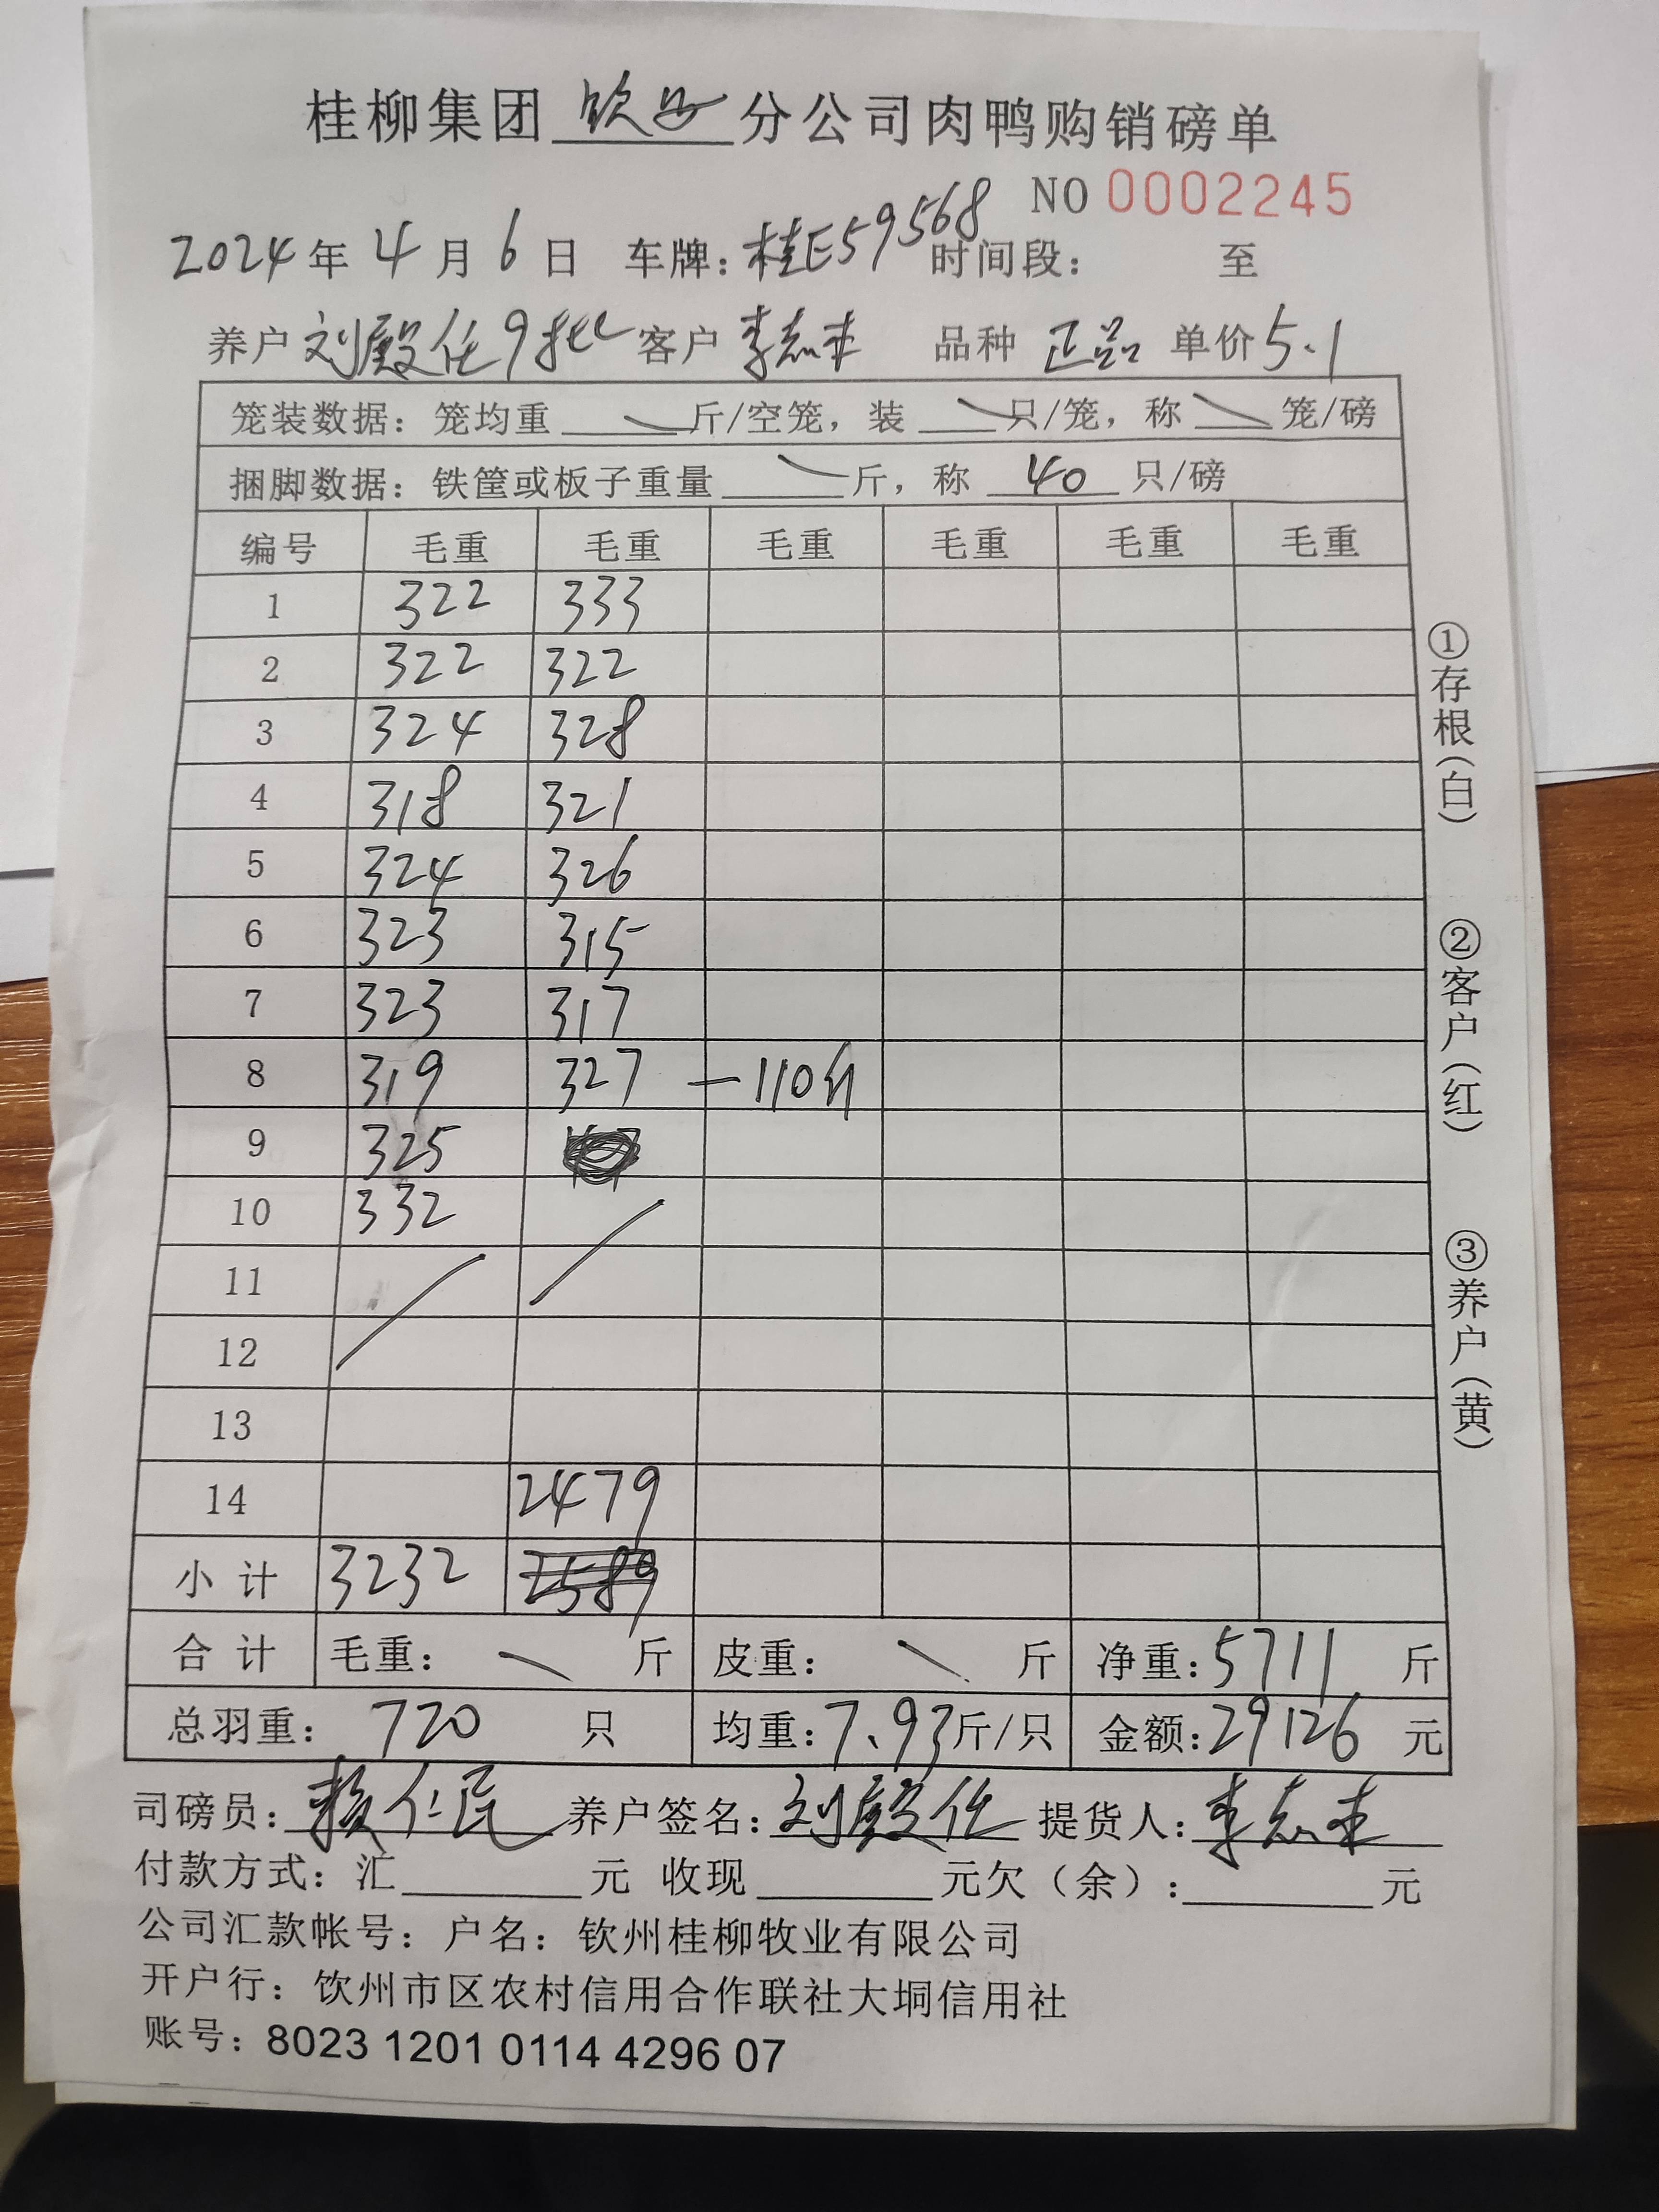 桂柳集团 钦州 分公司肉鸭购销磅单
NO 0002245
2024 年 4 月 6 日 车牌：桂E59568 时间段： 至
养户 刘殿任9批 客户 李志丰 品种 正品 单价 5.1
笼装数据：笼均重 斤/空笼，装 只/笼，称 笼/磅
捆脚数据：铁筐或板子重量 斤，称 40 只/磅
编号 毛重 毛重 毛重 毛重 毛重 毛重
1 322 333
2 322 322
3 324 328
4 318 321
5 324 326
6 323 315
7 323 317
8 319 327 -110斤
9 325
10 332
11
12
13
14 2479
小计 3232 2589
合计 毛重： 斤 皮重： 斤 净重：5711 斤
总羽重： 720 只 均重：7.93斤/只 金额：29126 元
司磅员：赖仁民 养户签名：刘殿任 提货人：李志丰
付款方式：汇 元 收现 元欠（余）： 元
公司汇款帐号：户名：钦州桂柳牧业有限公司
开户行：饮州市区农村信用合作联社大垌信用社
账号：8023 1201 0114 4296 07
①存根（白）
②客户（红）
③养户（黄）